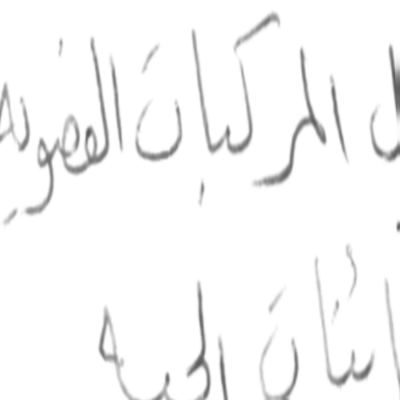 المركبات العضويه
ائنات الحيه